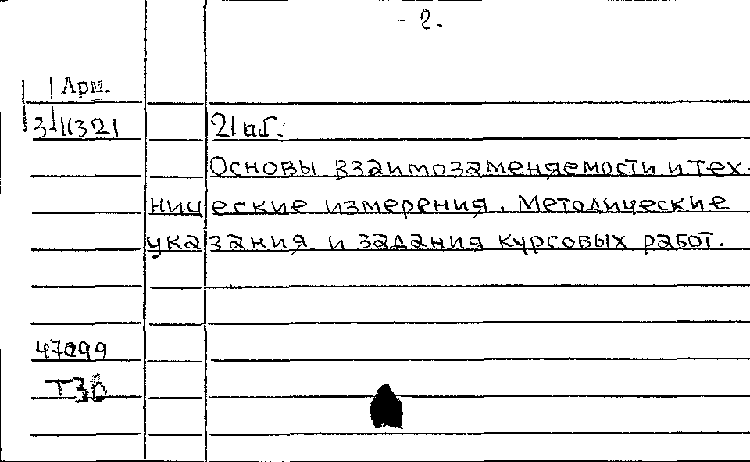 - 2.
Арм.
3-11321
Основы взаимозаменяемости и тех-
нические измерения. Методические
указания и задания курсовых работ.
47099